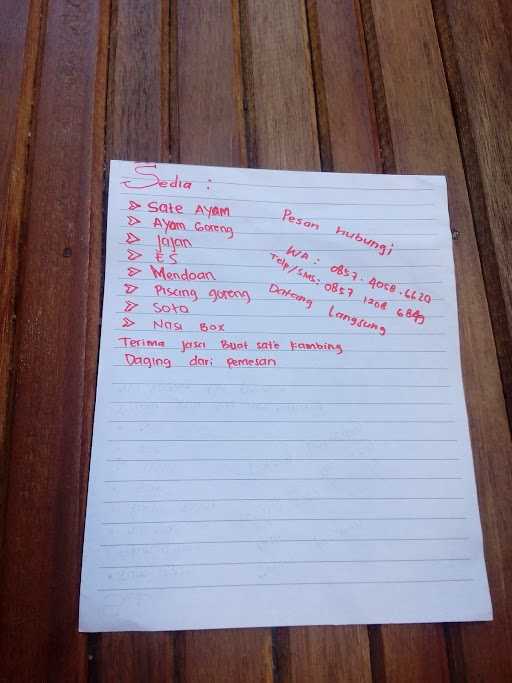 Sedia :
Sate Ayam
Ayam Goreng
Jajan
ES
Mendoan
Piscing goreng
Soto
Nasi Box
Terima Jasa Buat sate kambing
Daging dari Pemesan
Pesan hubungi
WA : 0857. 4058. 6620
Telp/SMS: 0857 1208
Datang Langsung